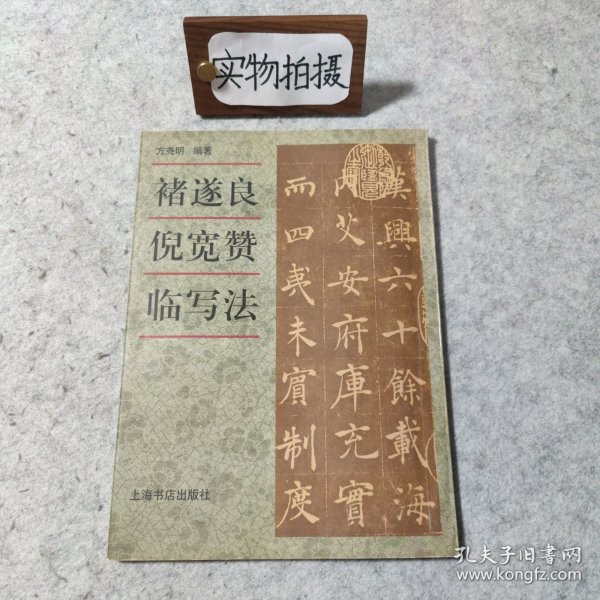 实物拍摄
方尧明 编著
褚遂良
倪宽赞
临写法
漢興六十餘載海
内乂安府庫充實
而四夷未賓制度
上海书店出版社
孔夫子旧書网
www.kongfz.com